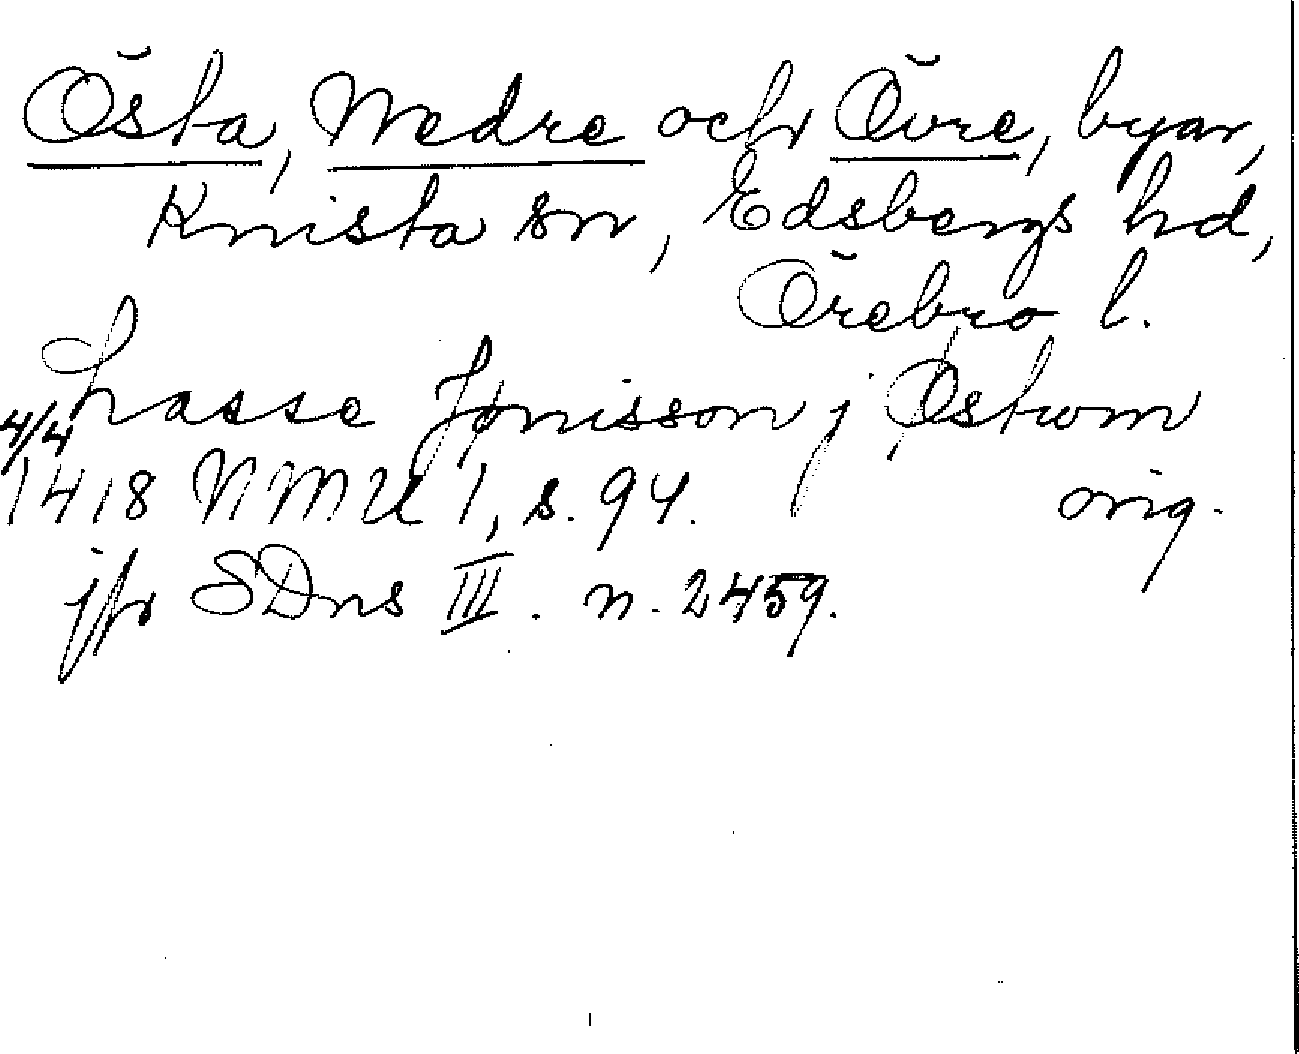 Östa, Nedre och Övre, byar,
Knista sn, Edsbergs hd,
Örebro l.
Lasse Jønisson j Østwm
4/4 1418 NMU 1, s. 94. orig.
jfr SDns III. n. 2459.